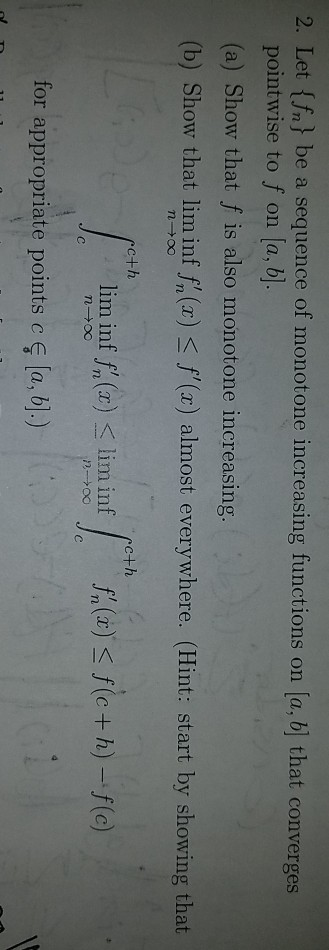 2. Let {fₙ} be a sequence of monotone increasing functions on [a, b] that converges
pointwise to f on [a, b].
(a) Show that f is also monotone increasing.
(b) Show that lim inf_{n→∞} f′ₙ(x) ≤ f′(x) almost everywhere. (Hint: start by showing that
∫_c^{c+h} lim inf_{n→∞} f′ₙ(x) ≤ lim inf_{n→∞} ∫_c^{c+h} f′ₙ(x) ≤ f(c + h) − f(c)
for appropriate points c ∈ [a, b].)